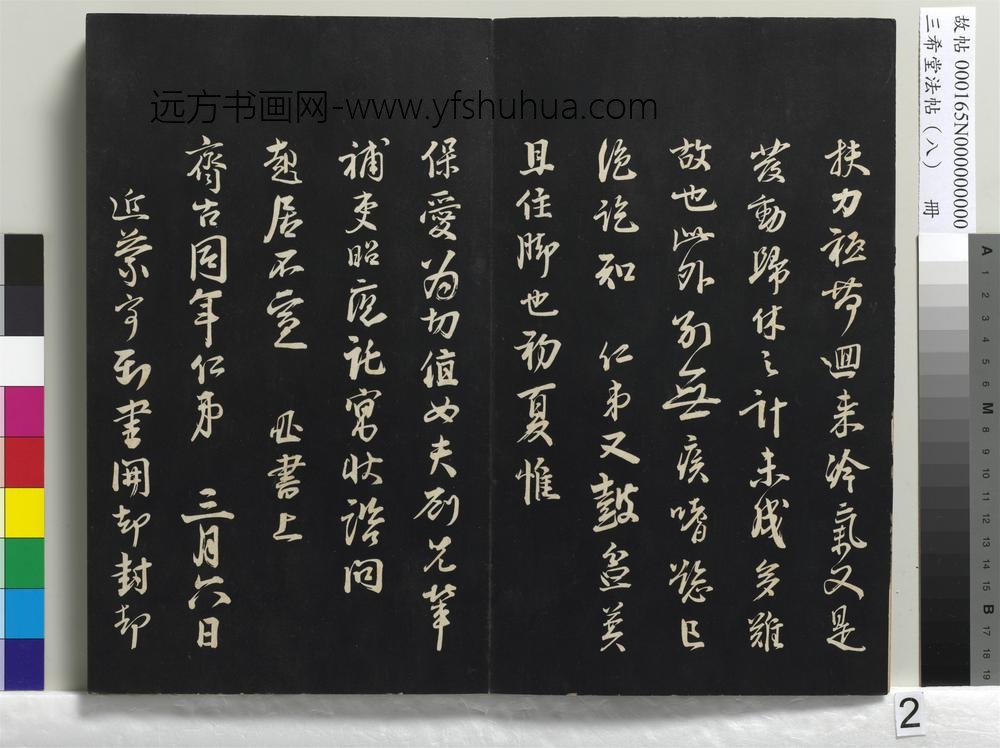 远方书画网-www.yfshuhua.com
故帖 000165N000000000
三希堂法帖(八) 册
扶力祗迴来冷氣又是
發動歸休之計未成多難
故也此外别無疾嗜慾已
絶訖和 仁弟又鼓盆莫
且住脚也初夏惟
保愛为切值女夫劉兄華
補吏昭應託寓状諮問
起居不宣 書上
齊古同年仁弟 三月六日
近蒙寄到書開却封却
2
A 1 2 3 4 5 6 M 8 9 10 11 12 13 14 15 B 17 18 19